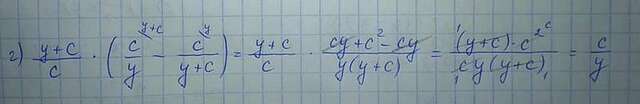 г) (y+c)/c · (c^{y+c}/y − c^{y}/(y+c)) = (y+c)/c · (cy+c²−cy)/(y(y+c)) = ((y+c)·c²^{c})/(cy(y+c)) = c/y